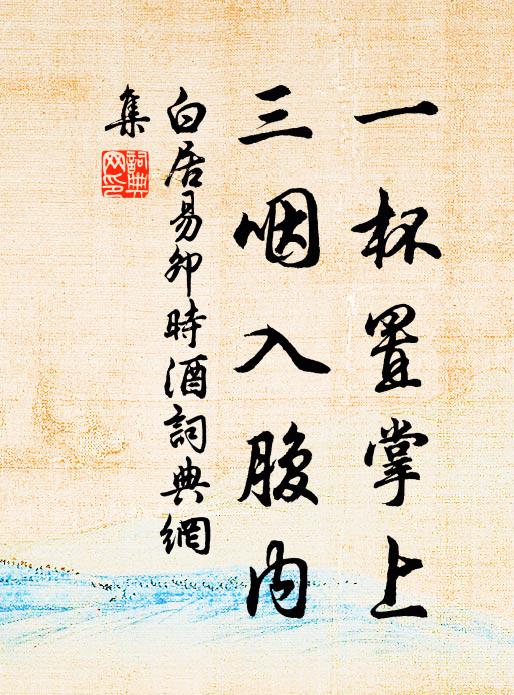 一杯置掌上
三咽入腹內
白居易卯時酒詞典網
集
詞典
网印